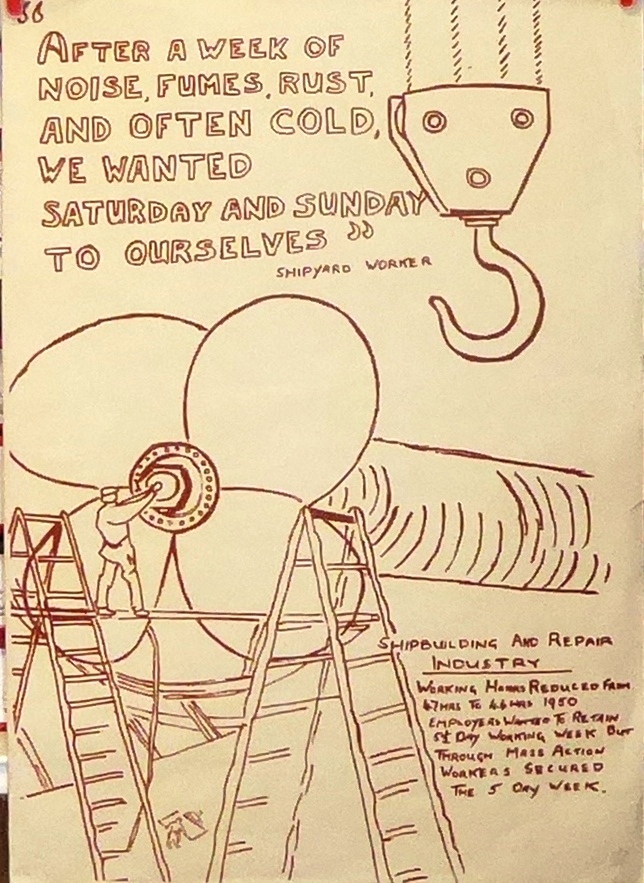 56
AFTER A WEEK OF
NOISE, FUMES, RUST,
AND OFTEN COLD,
WE WANTED
SATURDAY AND SUNDAY
TO OURSELVES ”
SHIPYARD WORKER
SHIPBUILDING AND REPAIR
INDUSTRY
WORKING HOURS REDUCED FROM
47 HRS TO 44 HRS 1950
EMPLOYERS WANTED TO RETAIN
5½ DAY WORKING WEEK BUT
THROUGH MASS ACTION
WORKERS SECURED
THE 5 DAY WEEK.